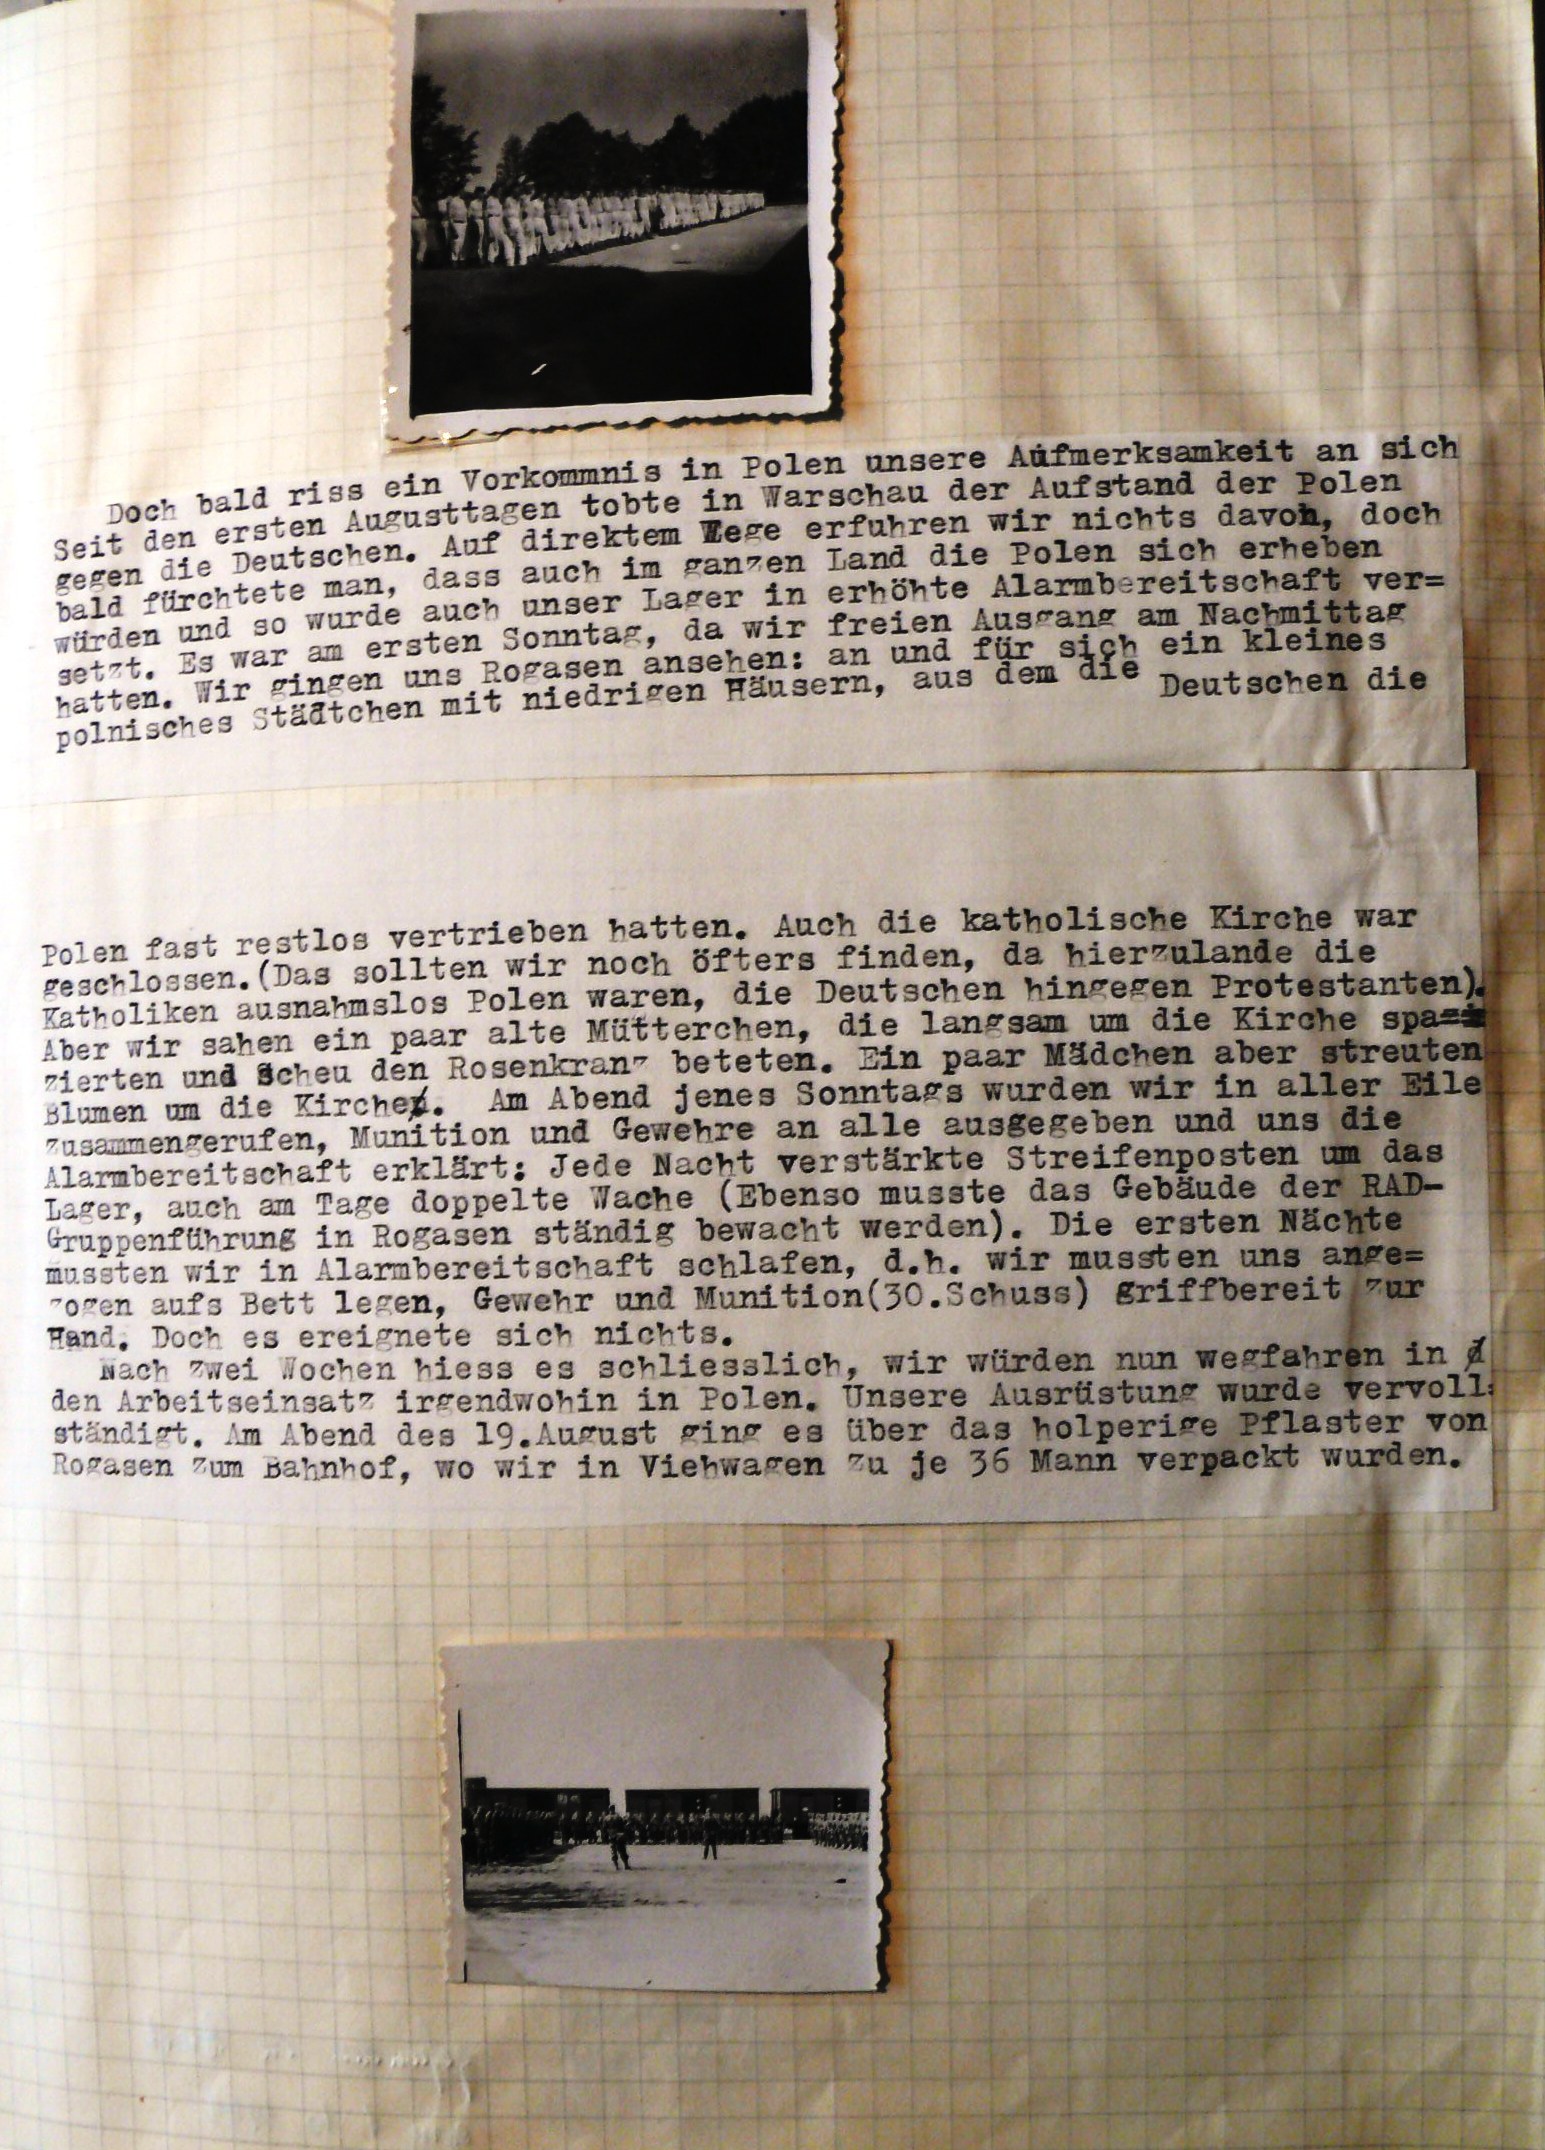 Doch bald riss ein Vorkommnis in Polen unsere Aufmerksamkeit an sich
Seit den ersten Augusttagen tobte in Warschau der Aufstand der Polen
gegen die Deutschen. Auf direktem Wege erfuhren wir nichts davon, doch
bald fürchtete man, dass auch im ganzen Land die Polen sich erheben
würden und so wurde auch unser Lager in erhöhte Alarmbereitschaft ver=
setzt. Es war am ersten Sonntag, da wir freien Ausgang am Nachmittag
hatten. Wir gingen uns Rogasen ansehen: an und für sich ein kleines
polnisches Städtchen mit niedrigen Häusern, aus dem die Deutschen die
Polen fast restlos vertrieben hatten. Auch die katholische Kirche war
geschlossen.(Das sollten wir noch öfters finden, da hierzulande die
Katholiken ausnahmslos Polen waren, die Deutschen hingegen Protestanten).
Aber wir sahen ein paar alte Mütterchen, die langsam um die Kirche spa=
zierten und Scheu den Rosenkranz beteten. Ein paar Mädchen aber streuten
Blumen um die Kirche. Am Abend jenes Sonntags wurden wir in aller Eile
zusammengerufen, Munition und Gewehre an alle ausgegeben und uns die
Alarmbereitschaft erklärt: Jede Nacht verstärkte Streifenposten um das
Lager, auch am Tage doppelte Wache (Ebenso musste das Gebäude der RAD-
Gruppenführung in Rogasen ständig bewacht werden). Die ersten Nächte
mussten wir in Alarmbereitschaft schlafen, d.h. wir mussten uns ange=
zogen aufs Bett legen, Gewehr und Munition(30.Schuss) griffbereit zur
Hand. Doch es ereignete sich nichts.
Nach zwei Wochen hiess es schliesslich, wir würden nun wegfahren in
den Arbeitseinsatz irgendwohin in Polen. Unsere Ausrüstung wurde vervoll=
ständigt. Am Abend des 19.August ging es über das holperige Pflaster von
Rogasen zum Bahnhof, wo wir in Viehwagen zu je 36 Mann verpackt wurden.